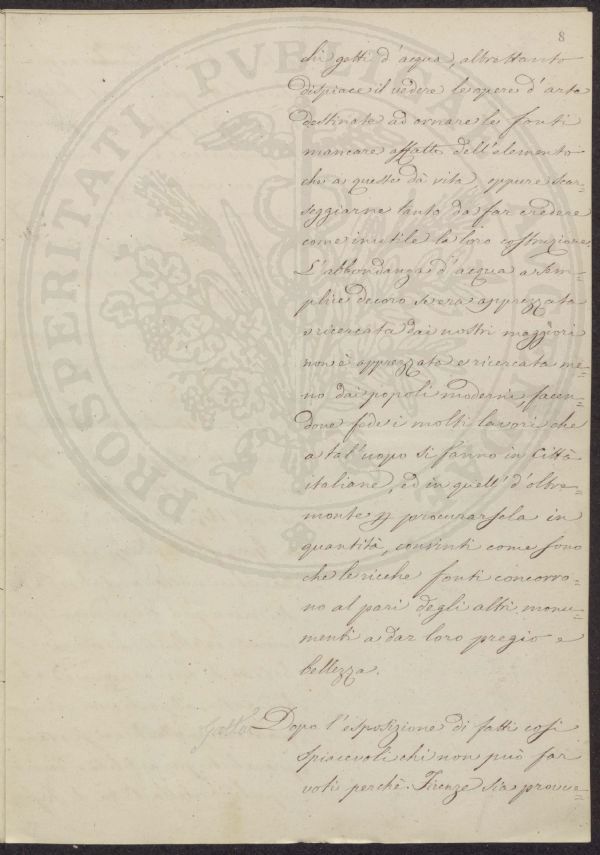 8
chi getti d'acqua, altrettanto
dispiace il vedere le opere d'arte
destinate ad ornare le fonti
mancare affatto dell'elemento
che a queste dà vita, oppure scar=
seggiarne tanto da far credere
come inutile la loro costruzione.
L'abbondanza d'acqua a sem=
plice decoro se era apprezzata
e ricercata dai nostri maggiori
non è apprezzata e ricercata me=
no dai popoli moderni, facen=
done fede i molti lavori che
a tal'uopo si fanno in Città
italiane, ed in quell' d'oltre=
monte p procurarsela in
quantità, convinti come sono
che le ricche fonti concorro=
no al pari degli altri monu=
menti a dar loro pregio e
bellezza.
Dopo l'esposizione di fatti così
spiacevoli chi non può far
voti perchè Firenze sia provve=
PROSPERITATI PVBLICAE